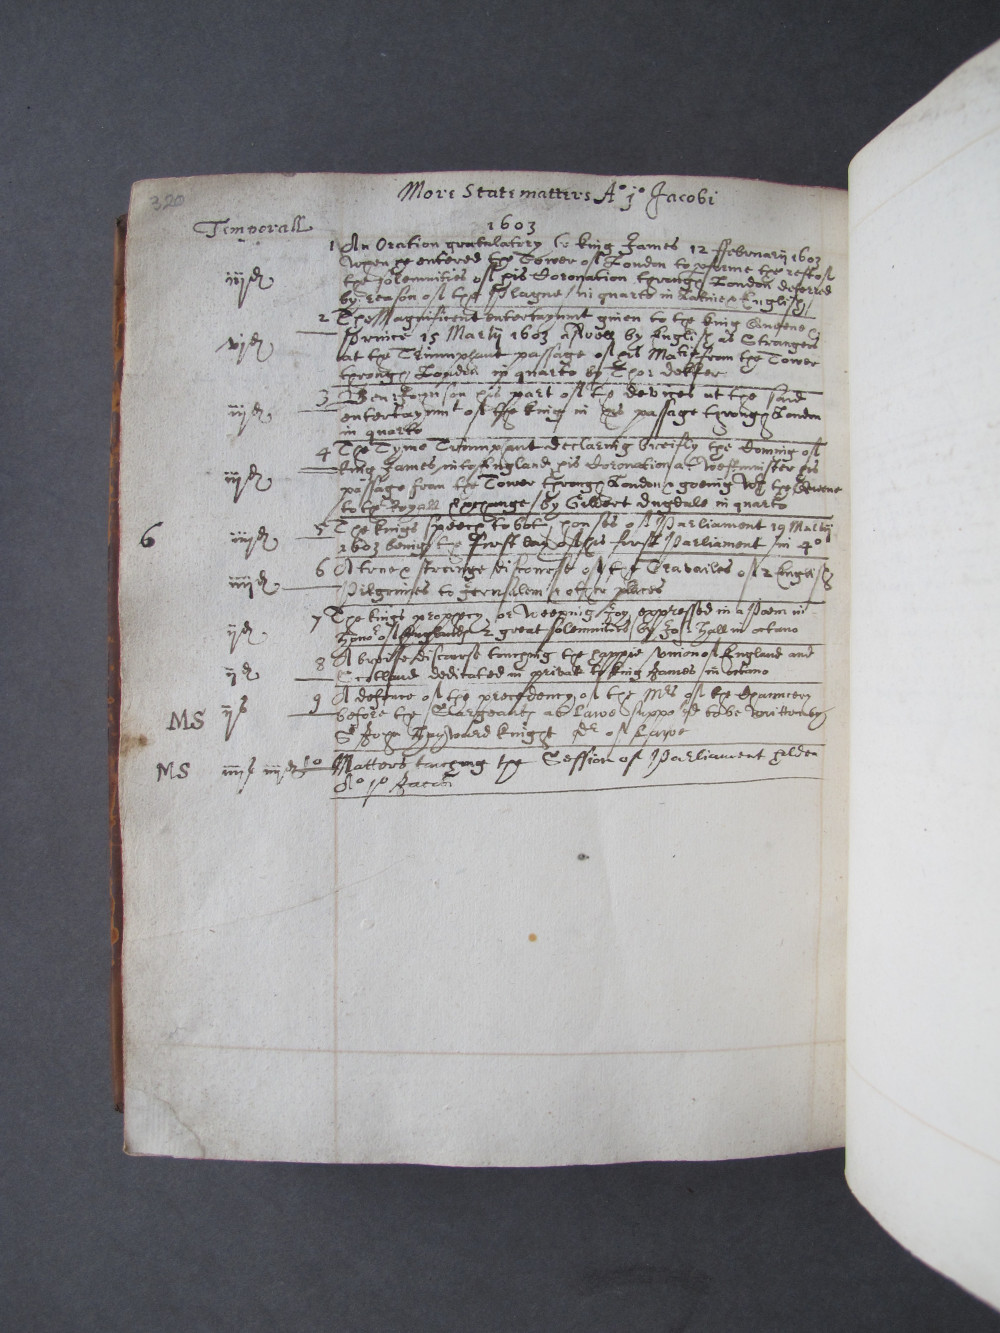 320
More State matters Ao jo Jacobi
Temporall
1603
1 An Oration gratulatory to king James 12 ffebruarij 1603
when he entered the Tower of London to performe the rest of
iijd the solemnities of his Coronation through London deferred
by reason of the Plague / in quarto in Latine & English /
2 The Magnificent entertaynmt giuen to the king Queene &
vjd Prince 15 Martij 1603 aswell by English as Strangers
at the Triumphant passage of his Matie from the Tower
through London in quarto by Thos dekker
3 Ben: Johnson his part of the devices at the said
iijd entertaynmt of the king in his passage through London
in quarto
4 The Tyme Triumphant declaring breifly the Coming of
king James into England his Coronation at Westminster his
iijd passage from the Tower through London & goeing wth the Queene
to the Royall Exchange / by Gilbert dugdale in quarto
6 iijd 5 The kings speech to both houses of Parliament 19 Martij
1603 being the first day of this first Parliament / in 4o
iiijd 6 A true & strange discourse of the Travailes of 2 English
Pilgrimes to Jerusalem & other places
7 The kings prophecy or weeping Joy expressed in a Poem in
ijd honr of Englands 2 great solemnities by Jos: Hall in octavo
ijd 8 A breiffe discourse touching the happie vnion of England and
Scotland dedicated in private to king James / in octavo
MS ijs 9 A defence of the precedency of the Mrs of the Chauncery
before the Seargeants at Lawe suppo'ed to be written by
Sr John Hayward knight Dr of Lawe
MS iiijs iiijd 10 Matters touching the Session of Parliament holden
Ao jo Jacobi